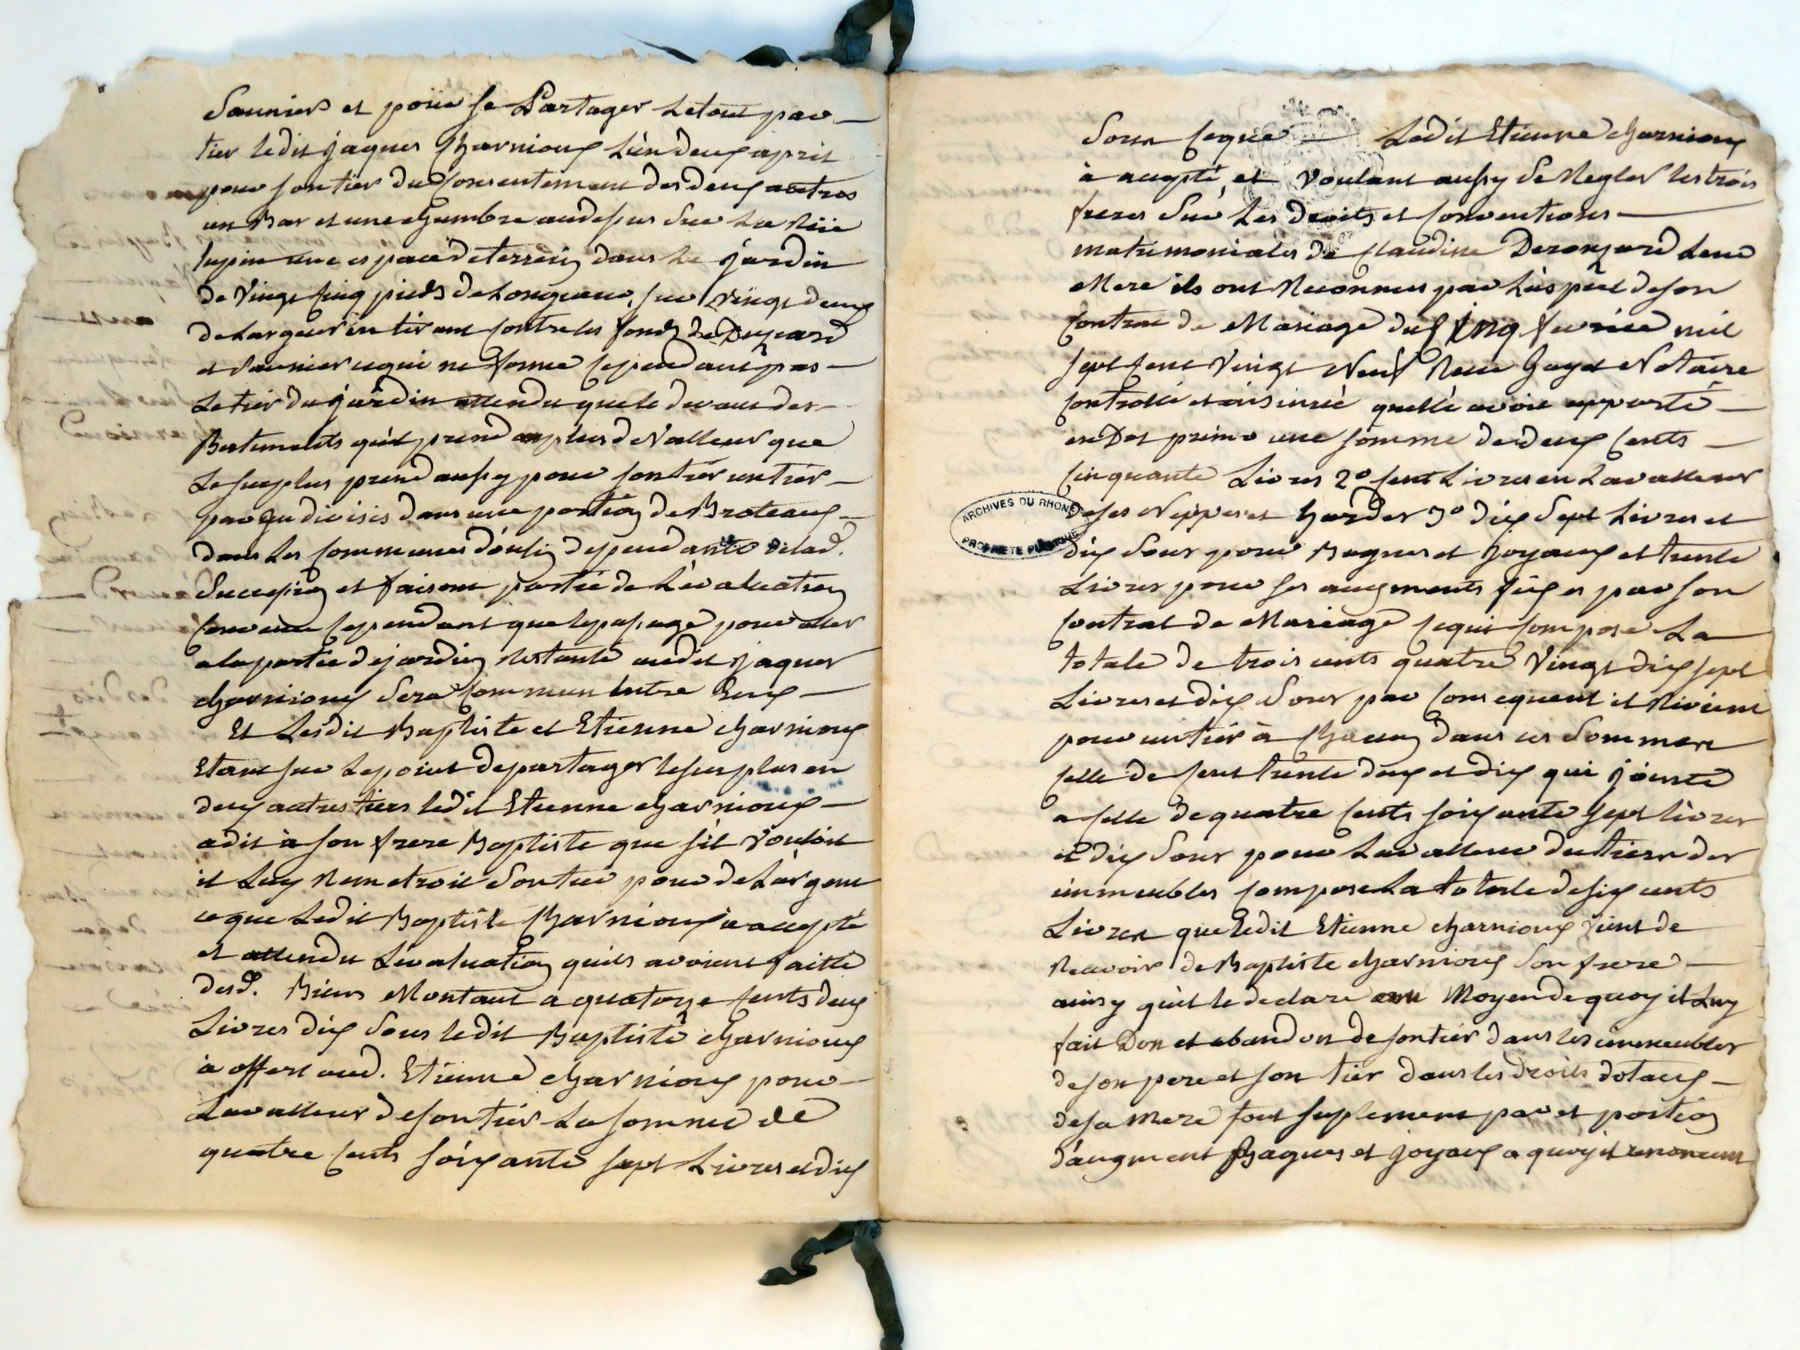 Sauniers et pour se Partager Letout par
tier ledit jaques Charnioux L'un deux a pris
pour son tier du Consentement des deux autres
un Bas et une chambre au desus Sur La Rüe
lupin une espace de terrein dans Le jardin
de Vingt Cinq pieds de Longueur, sur Vingt deux
de Largeur en tirant Contre les fonds de Dupard
et Saunier ce qui ne forme Cependant pas
Le tier du jardin attendu que le devant des
Batiments qu'il prend a plus de Valleur que
Le surplus prend aussy pour son tier un tier
par indivisis dans une portion de Broteaux
dans Les Communes d'oulin dependante de lad.
Succession et faisant partie de L'evaluation
Convenu Cependant que le passage pour aller
a la partie de jardin Restante audit jaques
charnioux Sera Commun Entre Eux
Et Lesdit Baptiste et Etienne charnioux
Etant sur Le point de partager le surplus en
deux autres tiers ledit Etienne charnioux
a dit à son frere Baptiste que s'il Vouloit
il Luy Remetroit Son tier pour de L'argent
ce que Ledit Baptiste Charnioux a accepté
et attendu L'evaluation qu'ils avoient faitte
desd. Biens Montant a quatorze Cents deux
Livres dix Sous ledit Baptiste charnioux
à offert aud. Etienne charnioux pour
La valleur de son tier La somme de
quatre Cents soixante sept Livres et dix
Sous Ceque Ledit Etienne charnioux
à accepté et Voulant aussy Se Regler les trois
freres Sur Les droits et Conventions
matrimoniales de Claudine Deronjard Leur
Mere ils ont Reconnus par L'aspect de son
Contrat de Mariage du Cinq fevrier mil
sept Cent Vingt Neuf Reçu Guyot Notaire
Controllé et insinué quelle avoit apporté
en Dot primo une somme de deux Cents
Cinquante Livres 2° Cent Livres en La valleur
de ses Nippes et hardes 3° dix Sept Livres et
dix Sous pour Bagues et Joyaux et trente
Livres pour ses augments fixés par son
Contrat de Mariage Ce qui Compose La
totale de trois cents quatre Vingt dix sept
Livres et dix Sous par Consequent il Revient
pour un tier à Chacun dans ces Sommes
Celle de Cent trente deux et dix qui jointe
a Celle de quatre Cents soixante Sept livres
et dix Sous pour La valleur du tiers des
immeubles Compose La totale de six cents
Livres que Ledit Etienne charnioux vient de
Recevoir de Baptiste charnioux Son frere
ainsy qu'il le declare au Moyen de quoy il Luy
fait Don et abandon de son tier dans les immeubles
de son pere et son tier dans les droits dotaux
de sa Mere tout suplement part et portion
d'augment Bagues et Joyaux a quoy il renoncent
ARCHIVES DU RHONE
PROPRIÉTÉ PUBLIQUE